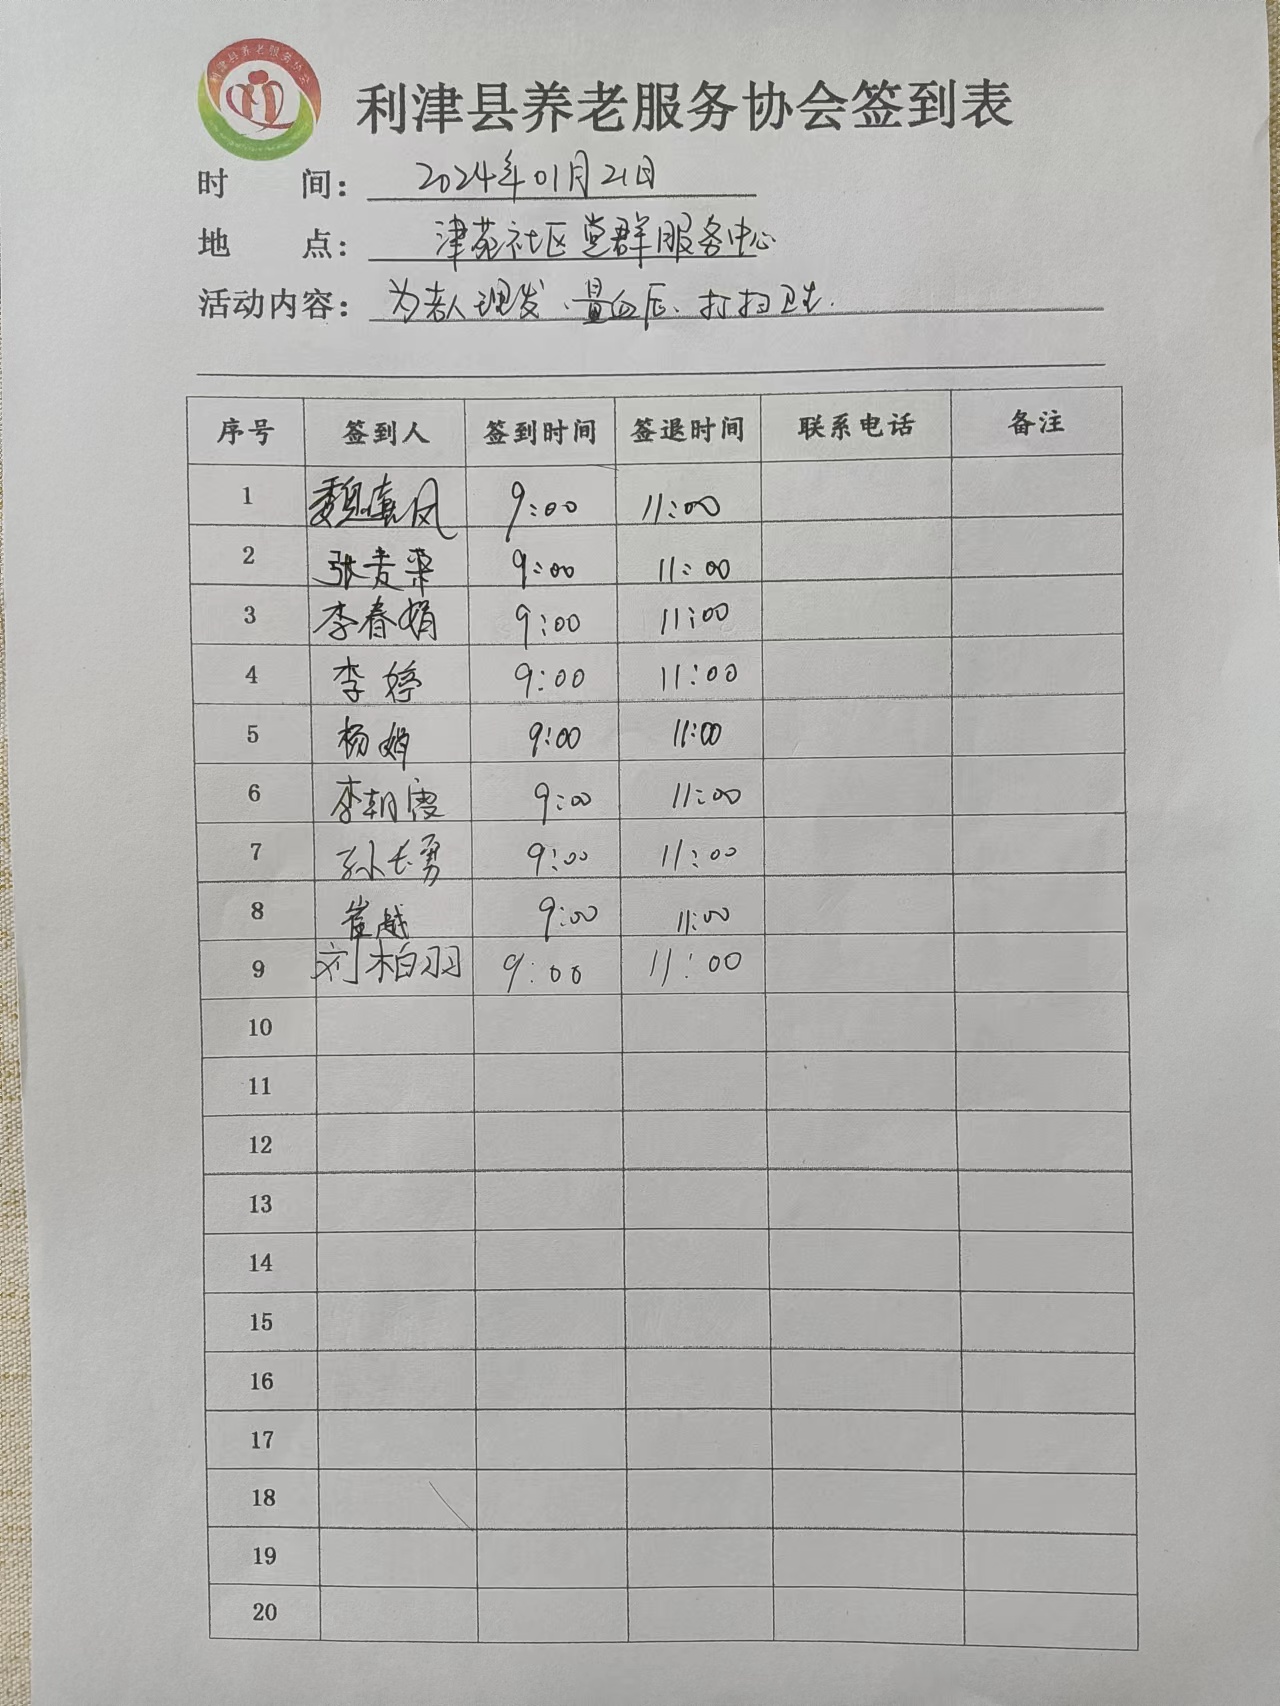 利津县养老服务协会
利津县养老服务协会签到表
时 间: 2024年01月21日
地 点: 津苑社区党群服务中心
活动内容: 为老人理发、量血压、打扫卫生.
序号 签到人 签到时间 签退时间 联系电话 备注
1 魏 凤 9:00 11:00
2 张贵荣 9:00 11:00
3 李春娟 9:00 11:00
4 李婷 9:00 11:00
5 杨娟 9:00 11:00
6 李朝霞 9:00 11:00
7 孙长勇 9:00 11:00
8 崔越 9:00 11:00
9 刘柏羽 9:00 11:00
10
11
12
13
14
15
16
17
18
19
20